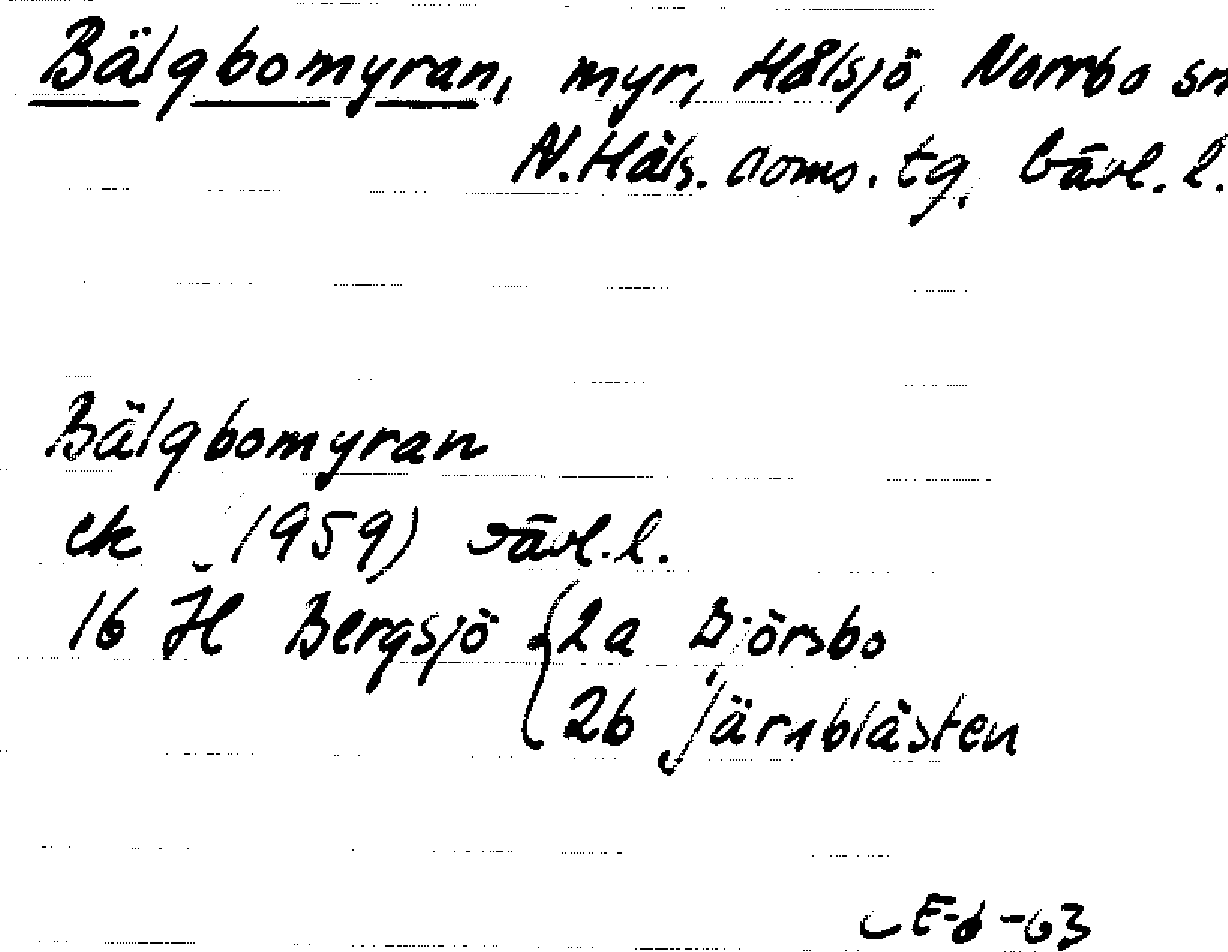 Bälgbomyran, myr, Hålsjö, Norrbo sn
N.Häls. doms. tg. Gävl. l.
Bälgbomyran
ek (1959) Gävl. l.
16 H Bergsjö { 2a Björsbo
2b Järnblästen